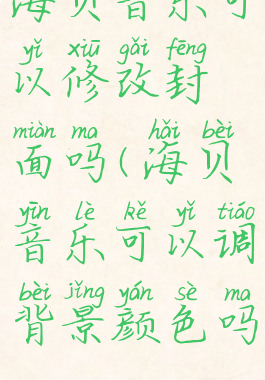 海贝音乐可
yǐ xiū gǎi fēng
以修改封
miàn ma hǎi bèi
面吗(海贝
yīn lè kě yǐ tiáo
音乐可以调
bèi jǐng yán sè ma
背景颜色吗